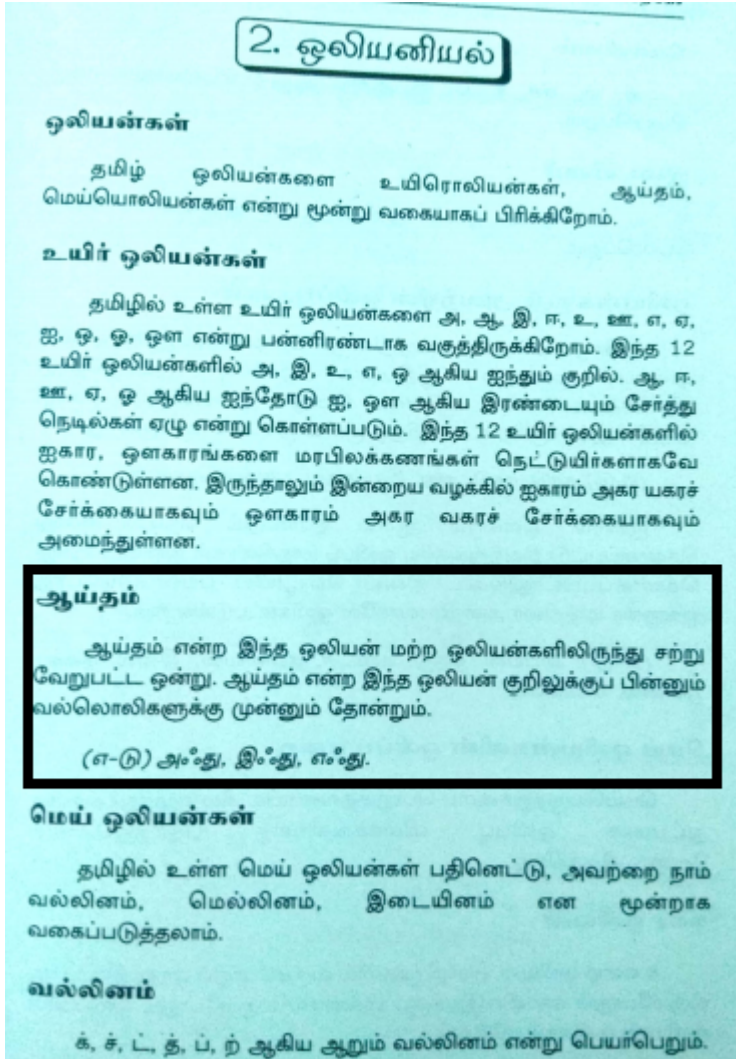 2. ஒலியனியல்
ஒலியன்கள்
தமிழ் ஒலியன்களை உயிரொலியன்கள், ஆய்தம்,
மெய்யொலியன்கள் என்று மூன்று வகையாகப் பிரிக்கிறோம்.
உயிர் ஒலியன்கள்
தமிழில் உள்ள உயிர் ஒலியன்களை அ, ஆ, இ, ஈ, உ, ஊ, எ, ஏ,
ஐ, ஒ, ஓ, ஔ என்று பன்னிரண்டாக வகுத்திருக்கிறோம். இந்த 12
உயிர் ஒலியன்களில் அ, இ, உ, எ, ஒ ஆகிய ஐந்தும் குறில். ஆ, ஈ,
ஊ, ஏ, ஓ ஆகிய ஐந்தோடு ஐ, ஔ ஆகிய இரண்டையும் சேர்த்து
நெடில்கள் ஏழு என்று கொள்ளப்படும். இந்த 12 உயிர் ஒலியன்களில்
ஐகார, ஔகாரங்களை மரபிலக்கணங்கள் நெட்டுயிர்களாகவே
கொண்டுள்ளன. இருந்தாலும் இன்றைய வழக்கில் ஐகாரம் அகர யகரச்
சேர்க்கையாகவும் ஔகாரம் அகர வகரச் சேர்க்கையாகவும்
அமைந்துள்ளன.
ஆய்தம்
ஆய்தம் என்ற இந்த ஒலியன் மற்ற ஒலியன்களிலிருந்து சற்று
வேறுபட்ட ஒன்று. ஆய்தம் என்ற இந்த ஒலியன் குறிலுக்குப் பின்னும்
வல்லொலிகளுக்கு முன்னும் தோன்றும்.
(எ-டு) அஃது, இஃது, எஃது.
மெய் ஒலியன்கள்
தமிழில் உள்ள மெய் ஒலியன்கள் பதினெட்டு, அவற்றை நாம்
வல்லினம், மெல்லினம், இடையினம் என மூன்றாக
வகைப்படுத்தலாம்.
வல்லினம்
க், ச், ட், த், ப், ற் ஆகிய ஆறும் வல்லினம் என்று பெயர்பெறும்.